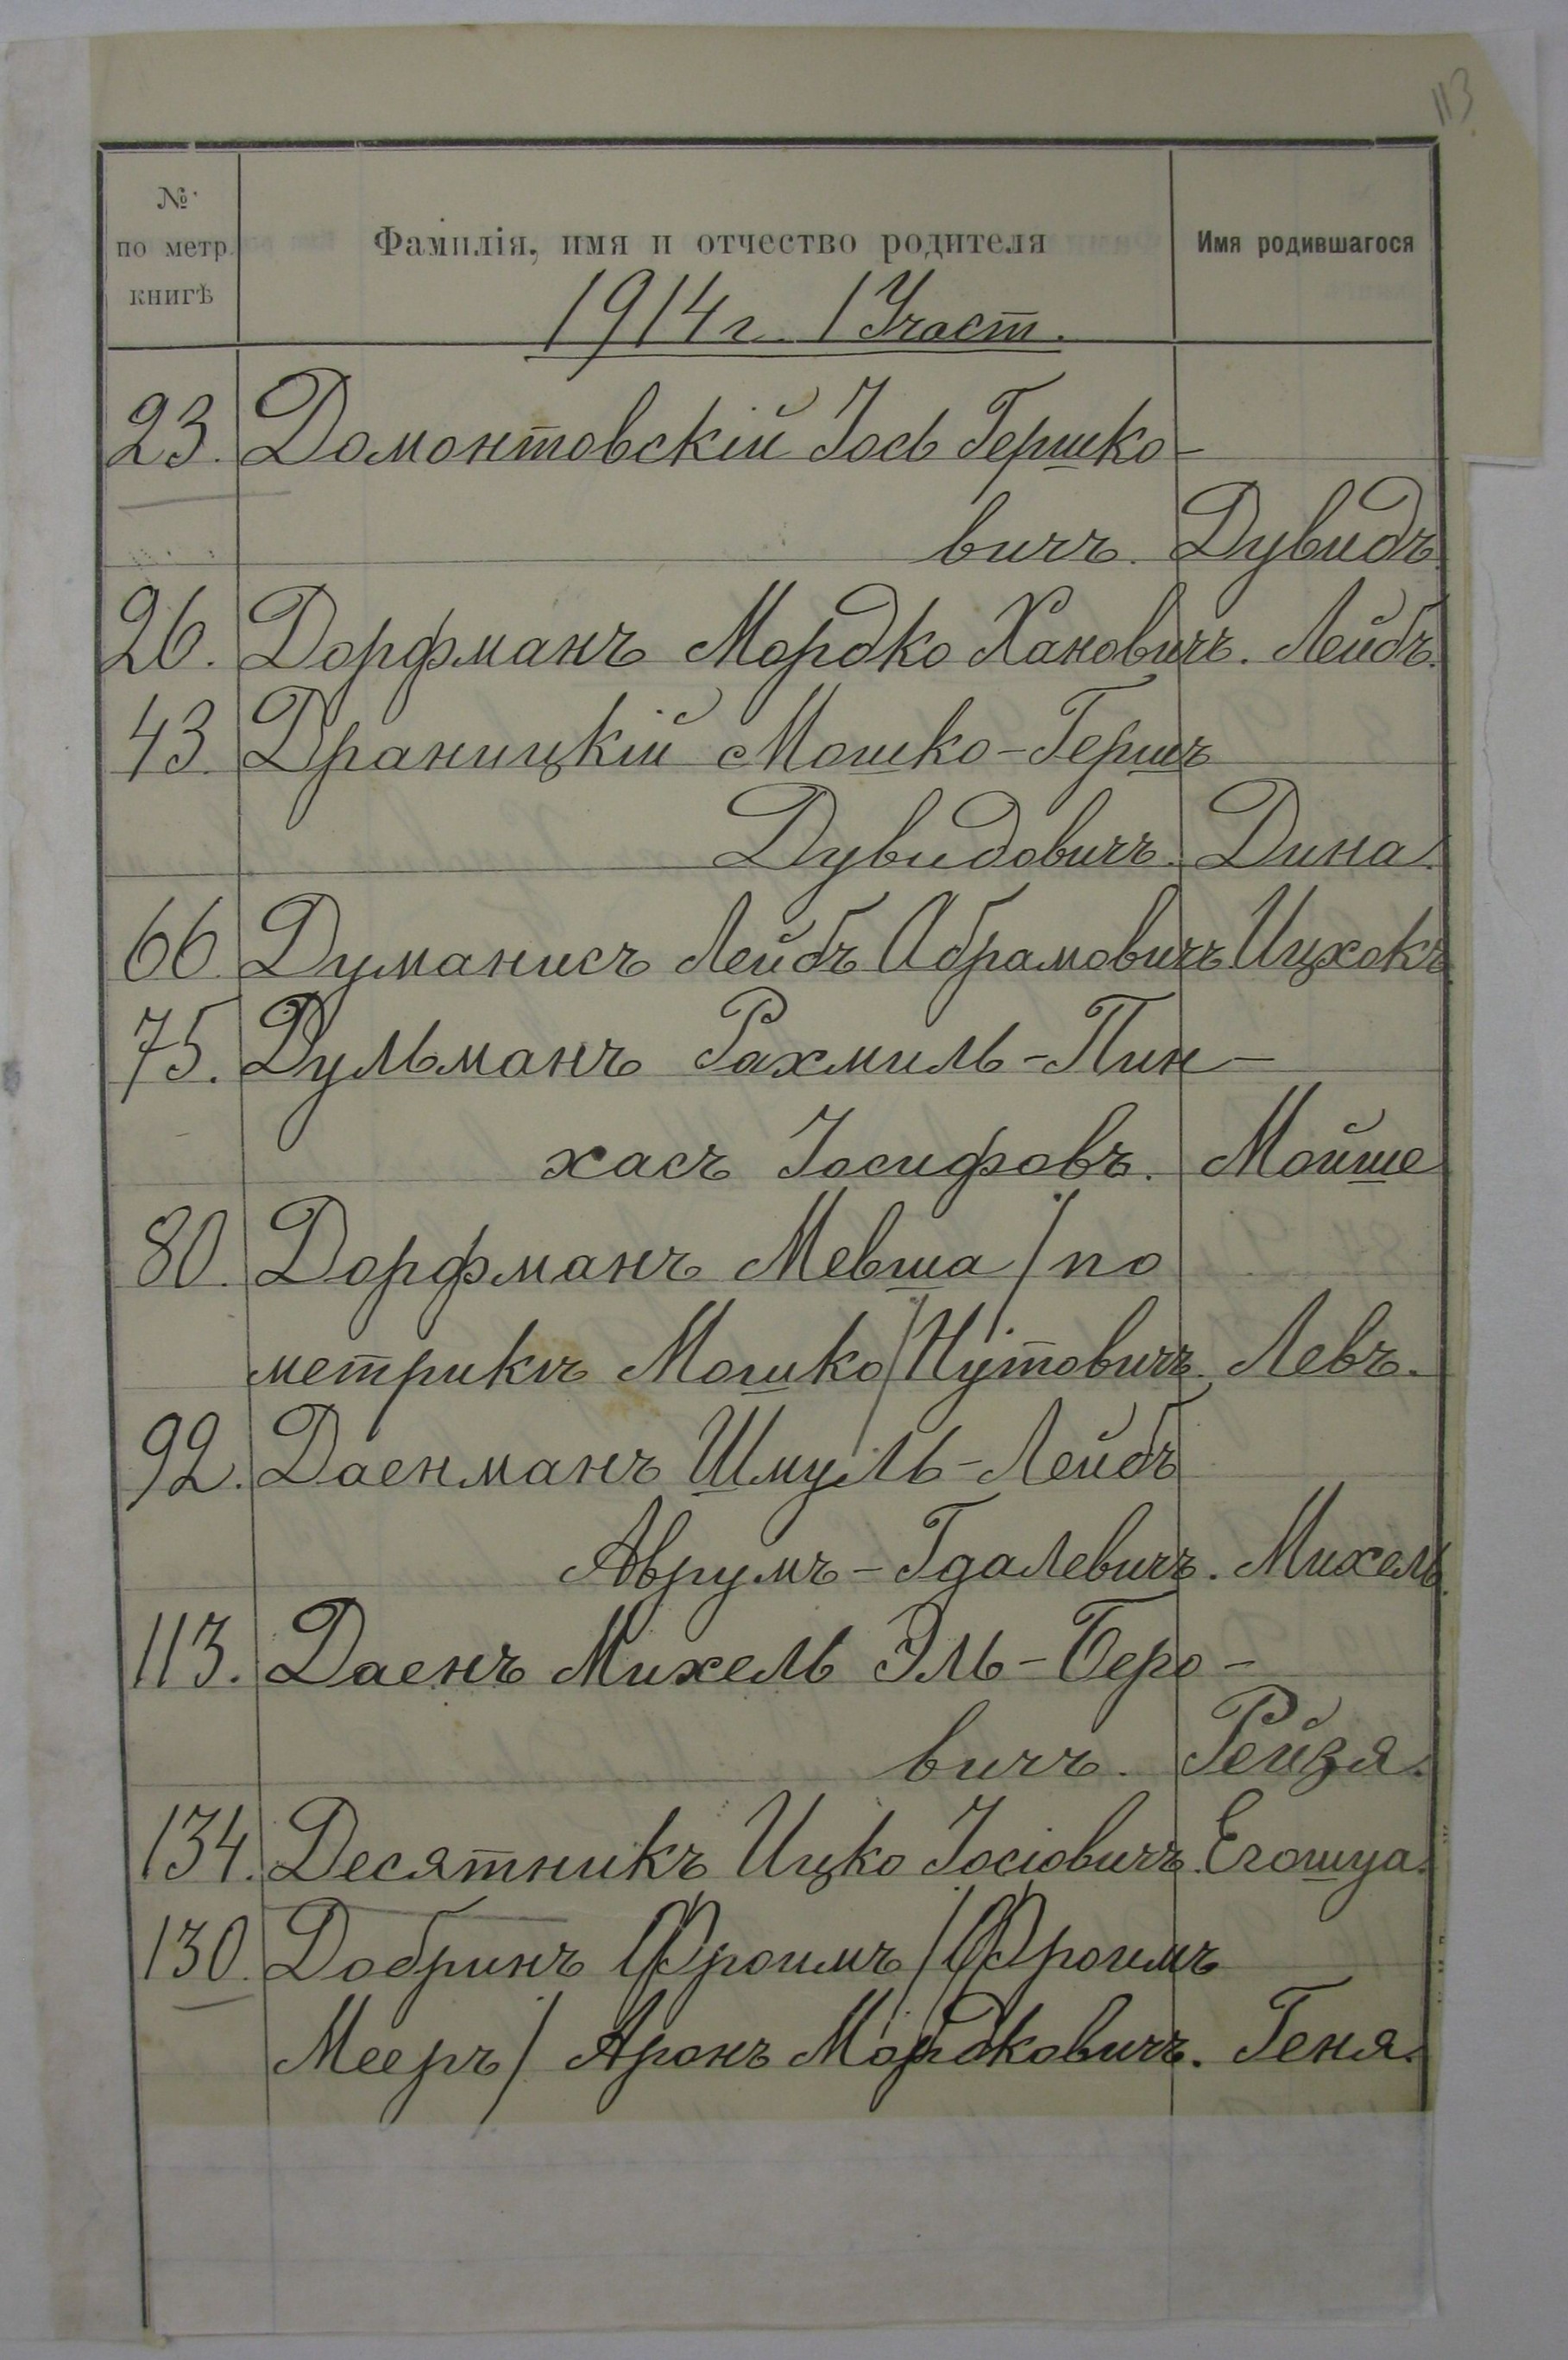 113
№ по метр. книгѣ
Фамилія, имя и отчество родителя
Имя родившагося
1914 г. 1 Участ.
23. Домонтовскій Іось Гершко-
вичъ. Дувидъ.
26. Дорфманъ Мордко Хановичъ. Лейбъ.
43. Драницкій Мошко-Гершъ
Дувидовичъ. Дина.
66. Думанисъ Лейбъ Абрамовичъ. Ицхокъ.
75. Дульманъ Рахмиль-Пин-
хасъ Іосифовъ. Мойше
80. Дорфманъ Мевша / по
метрикѣ Мошко / Нутовичъ. Левъ.
92. Даенманъ Шмуль-Лейбъ
Аврумъ-Гдалевичъ. Михель.
113. Даенъ Михель Эль-Беро-
вичъ. Рейзя.
134. Десятникъ Ицко Іосіовичъ. Егошуа.
130. Добринъ Фроимъ / Фроимъ
Мееръ / Аронъ Мордковичъ. Геня.